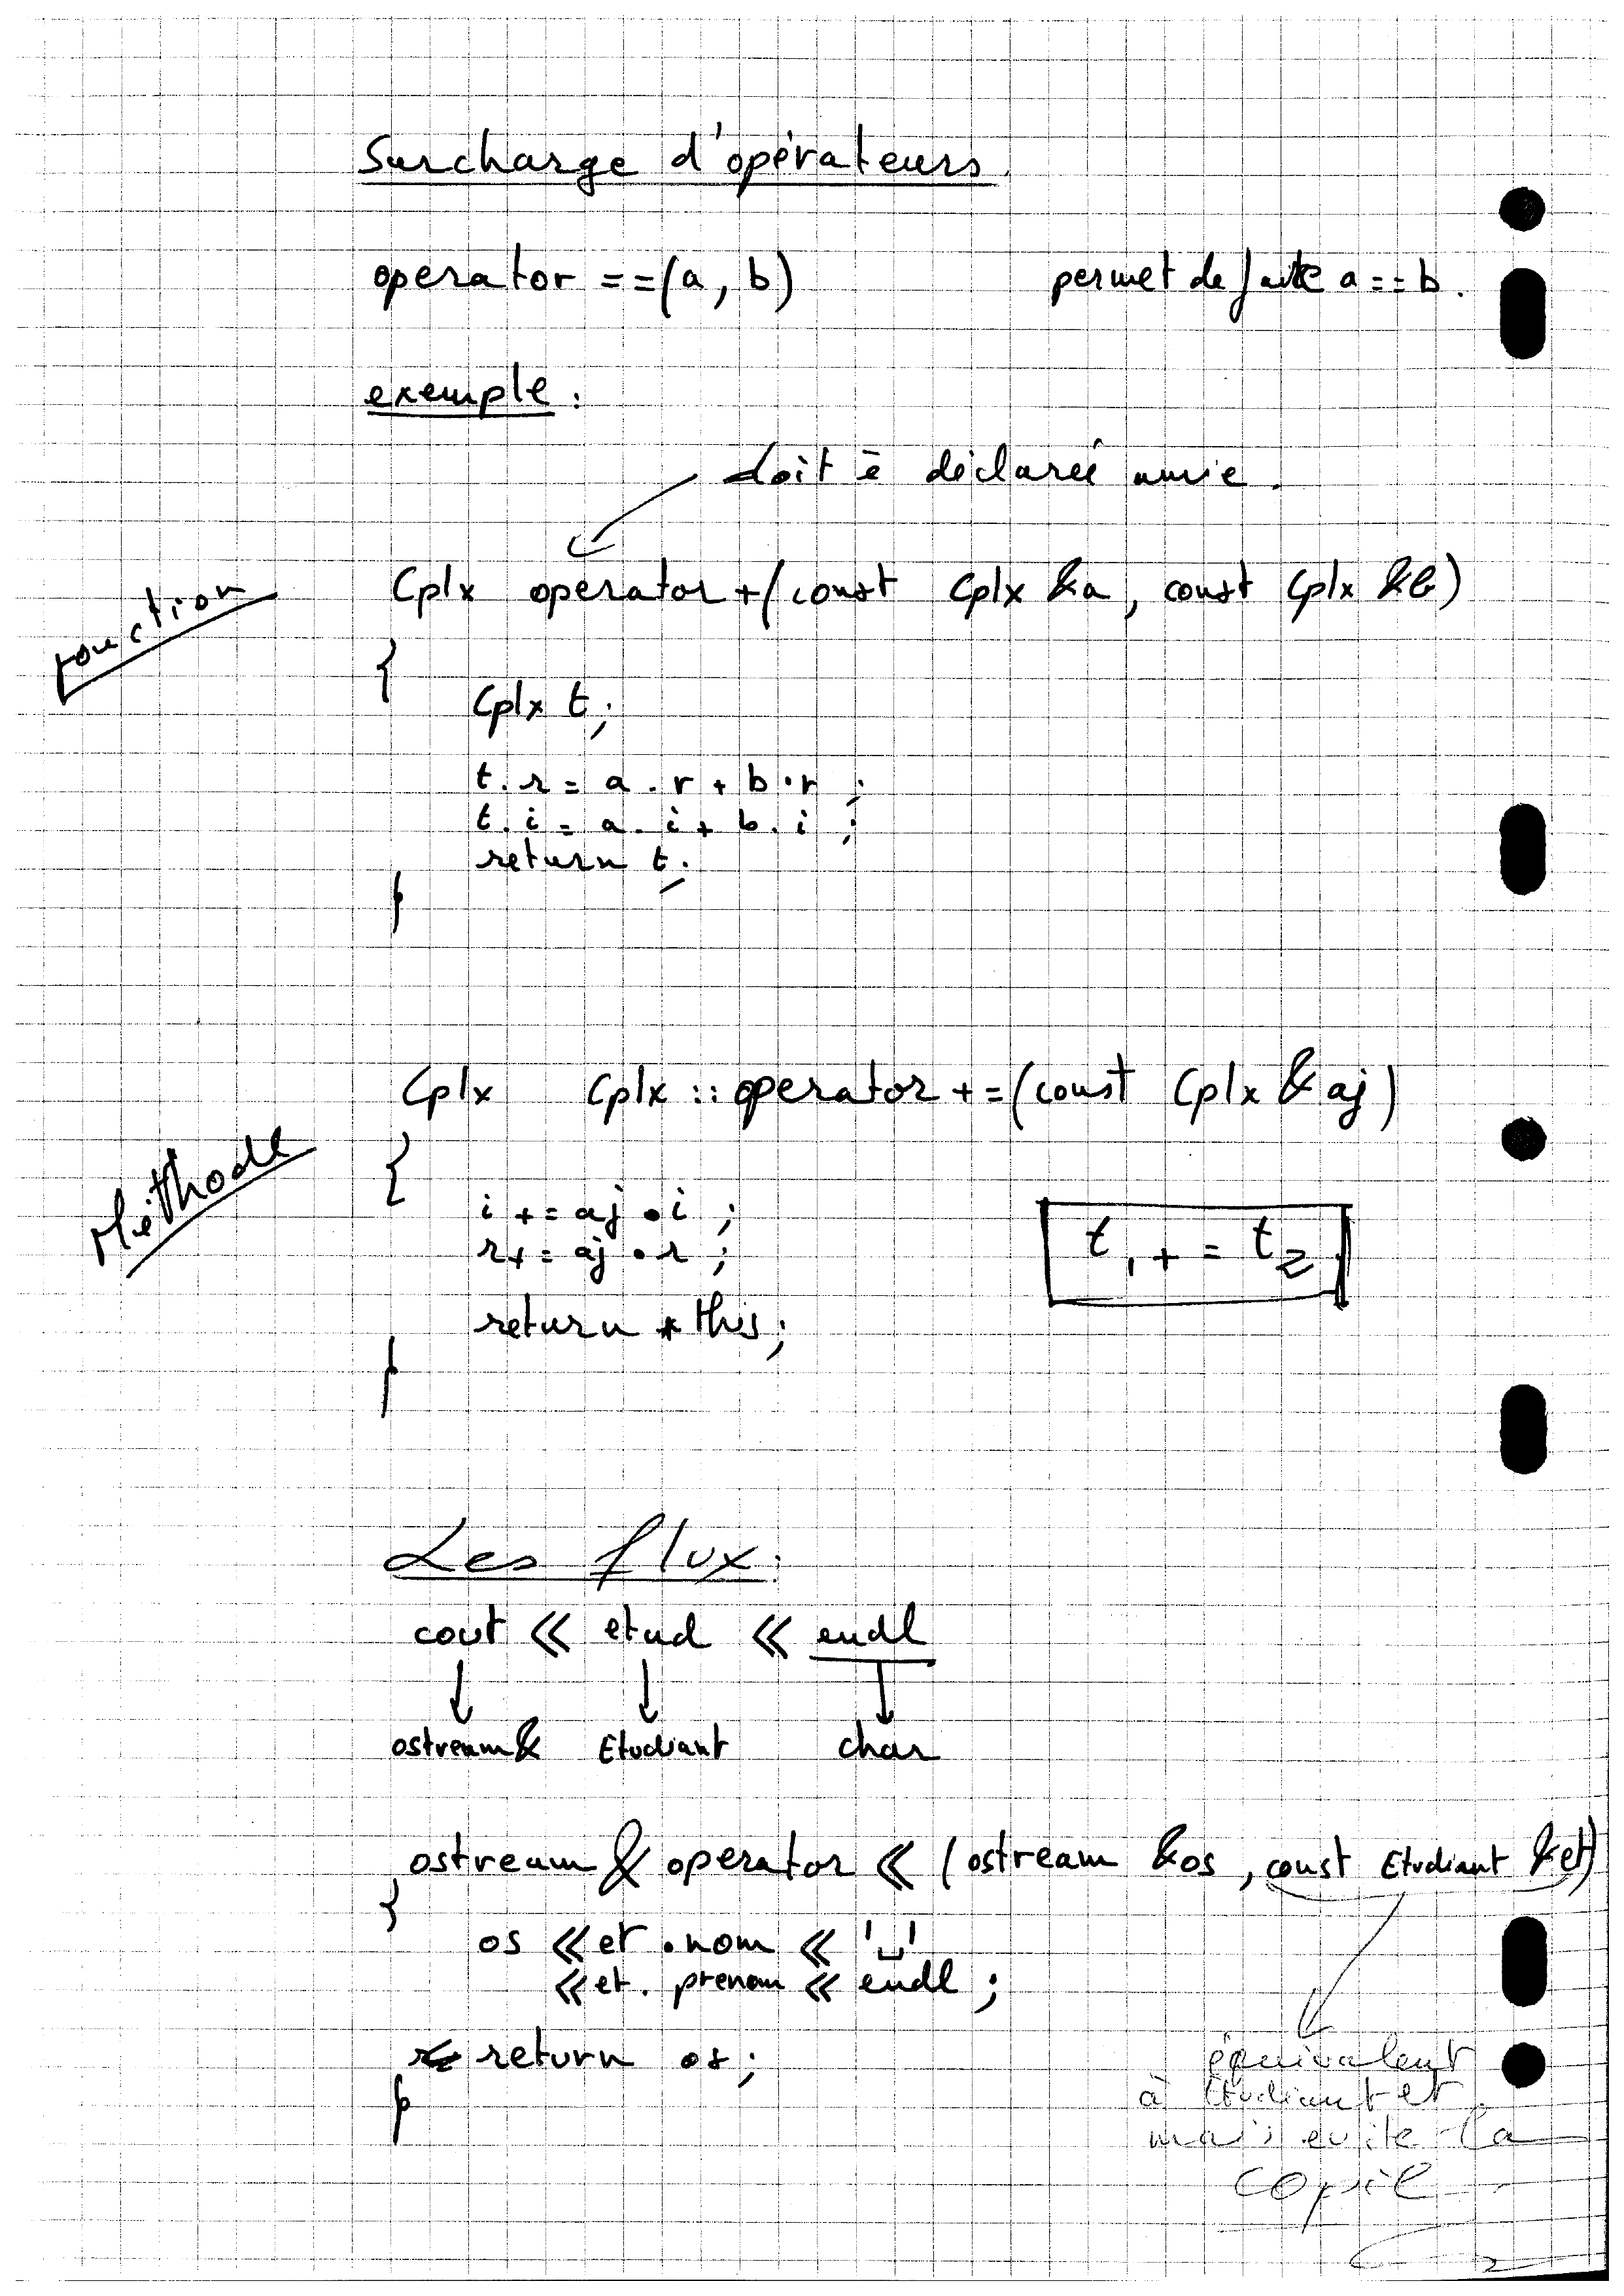 Surcharge d'opérateurs.
operator ==(a, b) permet de faire a == b.
exemple :
doit ê déclarée amie.
fonction
Cplx operator+(const Cplx &a, const Cplx &b)
{
Cplx t;
t.r = a.r + b.r ;
t.i = a.i + b.i ;
return t;
}
Cplx Cplx::operator+=(const Cplx &aj)
Méthode
{
i += aj.i ;
r += aj.r ;
t1 += t2
return *this;
}
Les flux :
cout << etud << endl
ostream& Etudiant char
ostream & operator << (ostream &os, const Etudiant &et)
{
os << et.nom << '␣'
<< et.prenom << endl ;
return os;
}
équivalent
à Etudiant et
mais evite la
copie